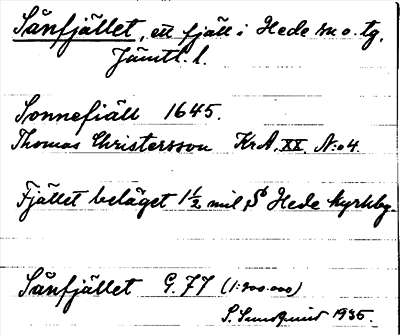 Sånfjället, ett fjäll i Hede sn o. tg.
Jämtl. l.
Sonnefiäll 1645.
Thomas Christersson KrA. XX. N:o 4.
Fjället beläget 1 1/2 mil S° Hede kyrkby.
Sånfjället G. 77 (1:200.000)
S. Sundquist 1935.